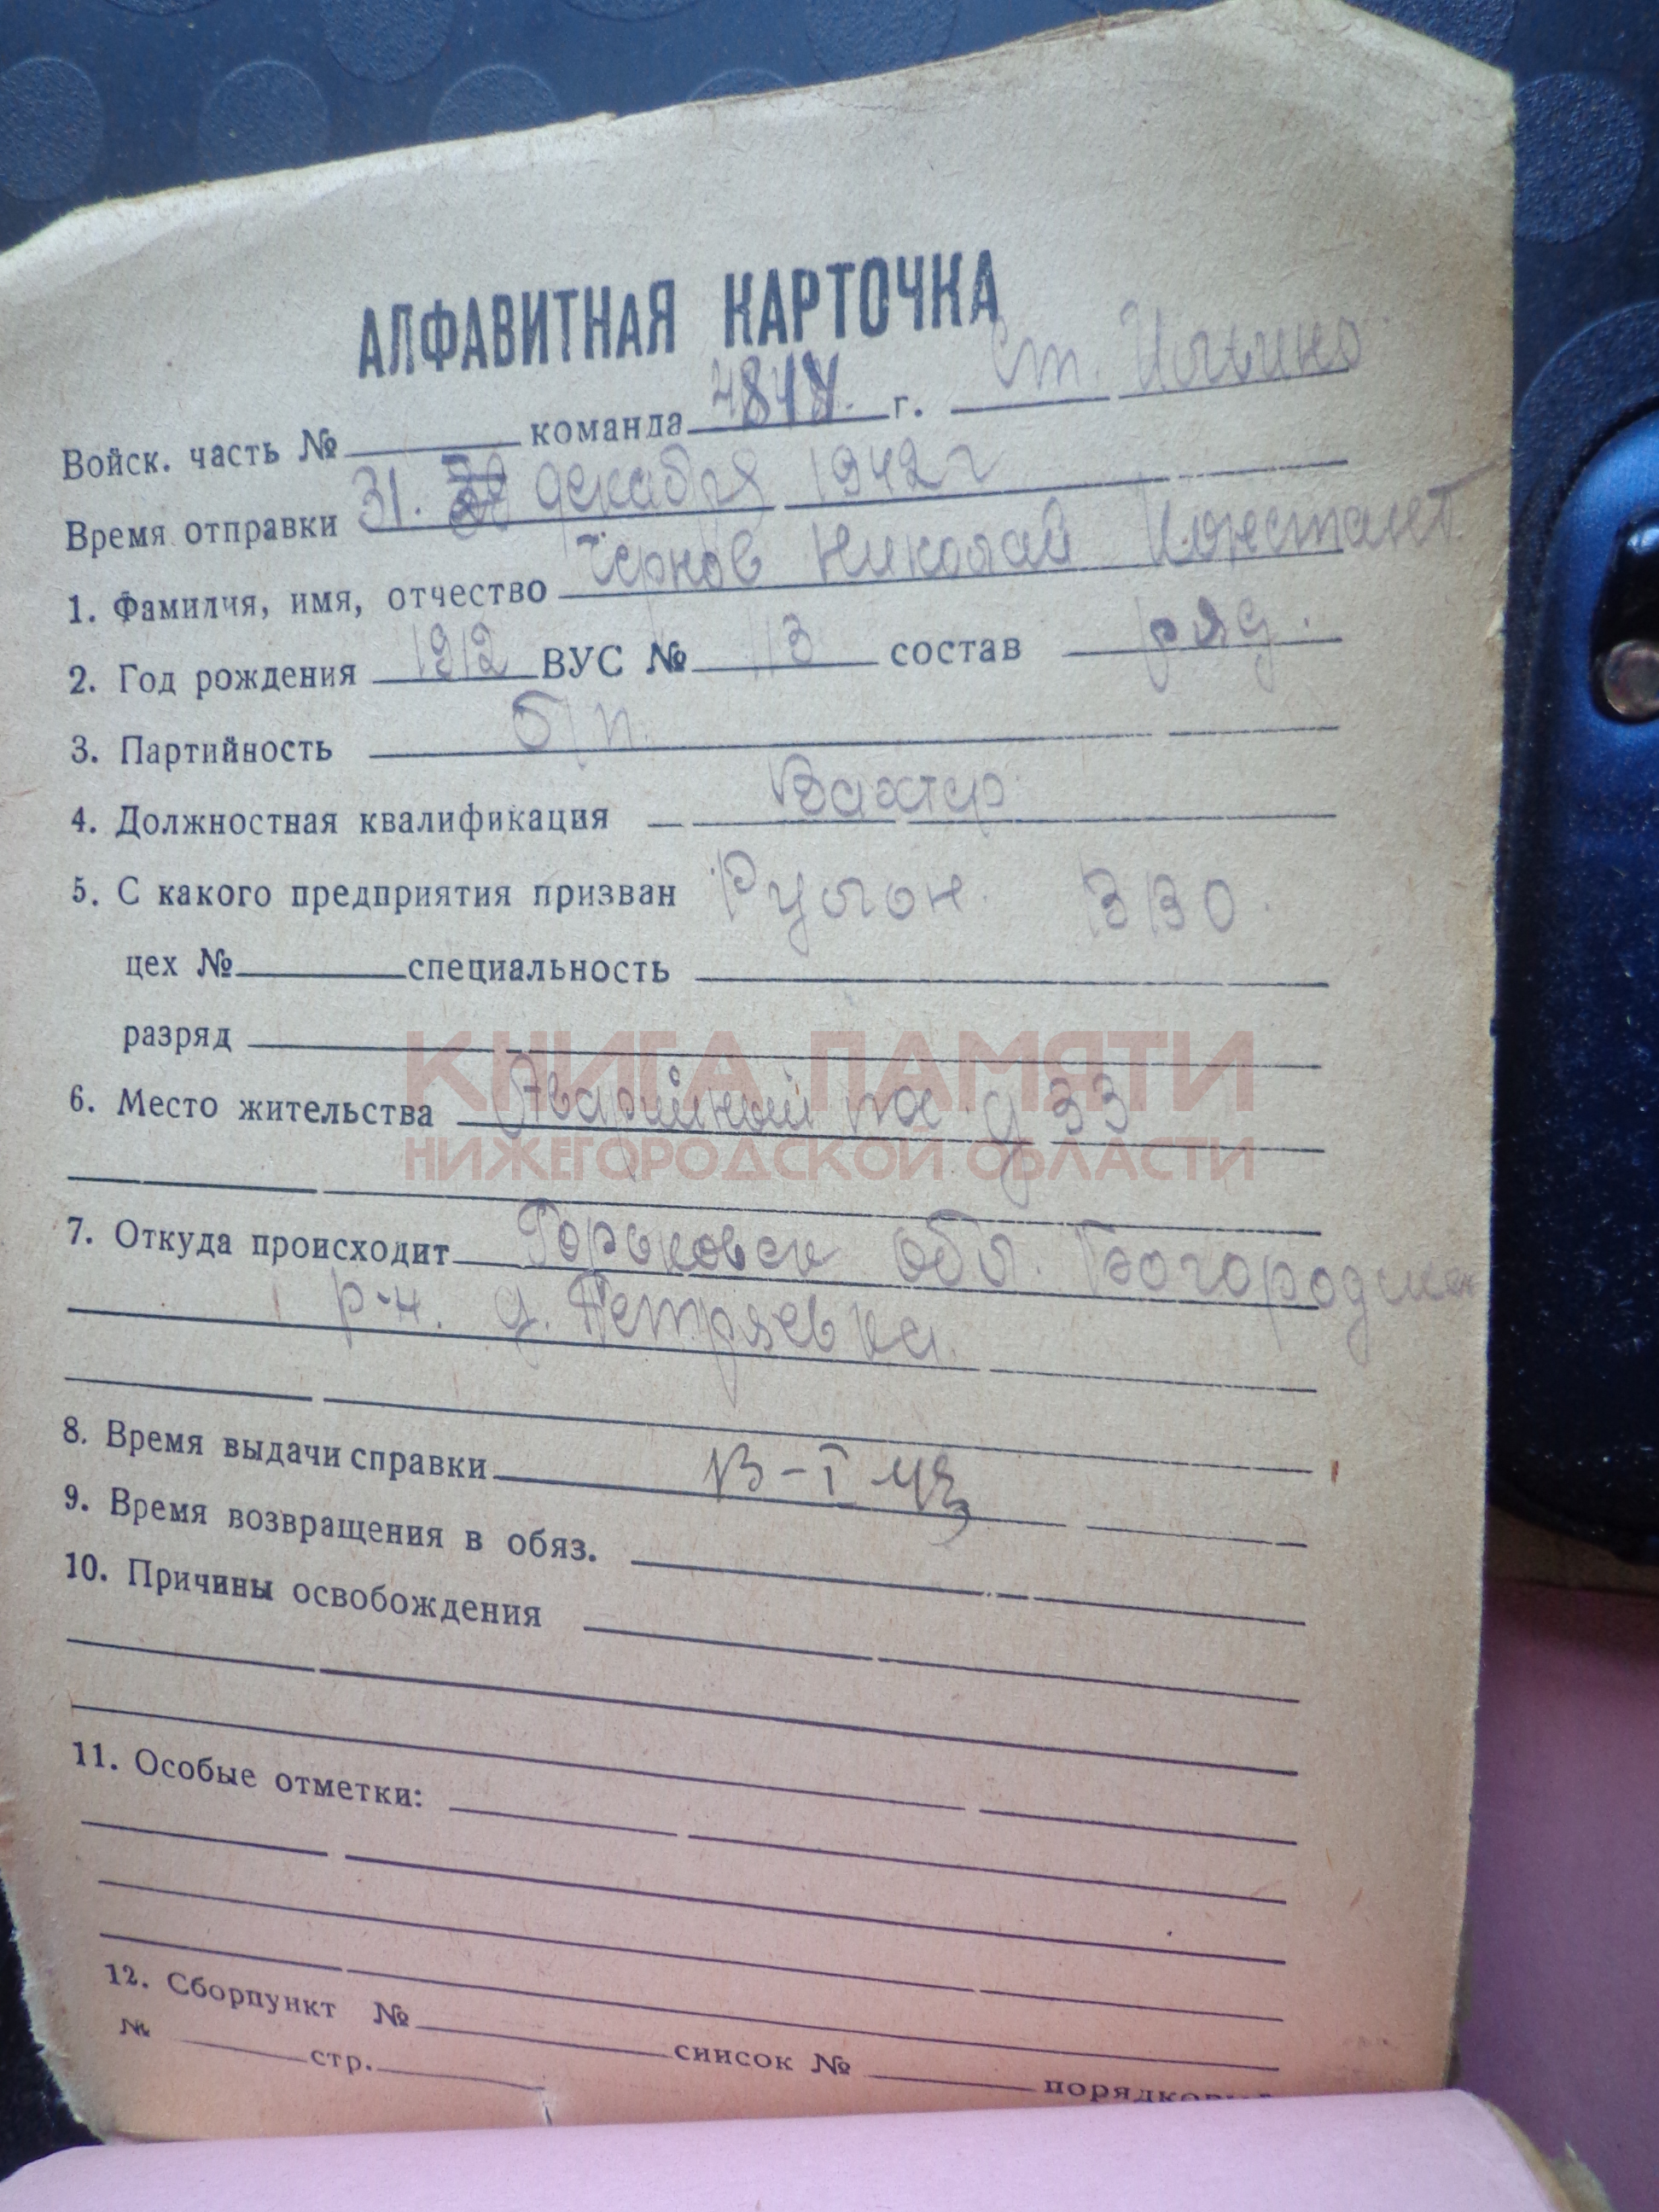 АЛФАВИТНАЯ КАРТОЧКА
Войск. часть № команда г. Ст. Ильино
Время отправки 31. декабря 1942 г
1. Фамилия, имя, отчество Чернов Николай Констант.
2. Год рождения 1912 ВУС № 113 состав ряд.
3. Партийность б/п.
4. Должностная квалификация Вахтер
5. С какого предприятия призван ВВО.
цех № специальность
разряд
КНИГА ПАМЯТИ
6. Место жительства Аварийный пос. д 33
НИЖЕГОРОДСКОЙ ОБЛАСТИ
7. Откуда происходит Горьковск обл. Богородск
р-н. д. Петряевка.
8. Время выдачи справки 13-I 43
9. Время возвращения в обяз.
10. Причины освобождения
11. Особые отметки:
12. Сборпункт № список №
№ стр.